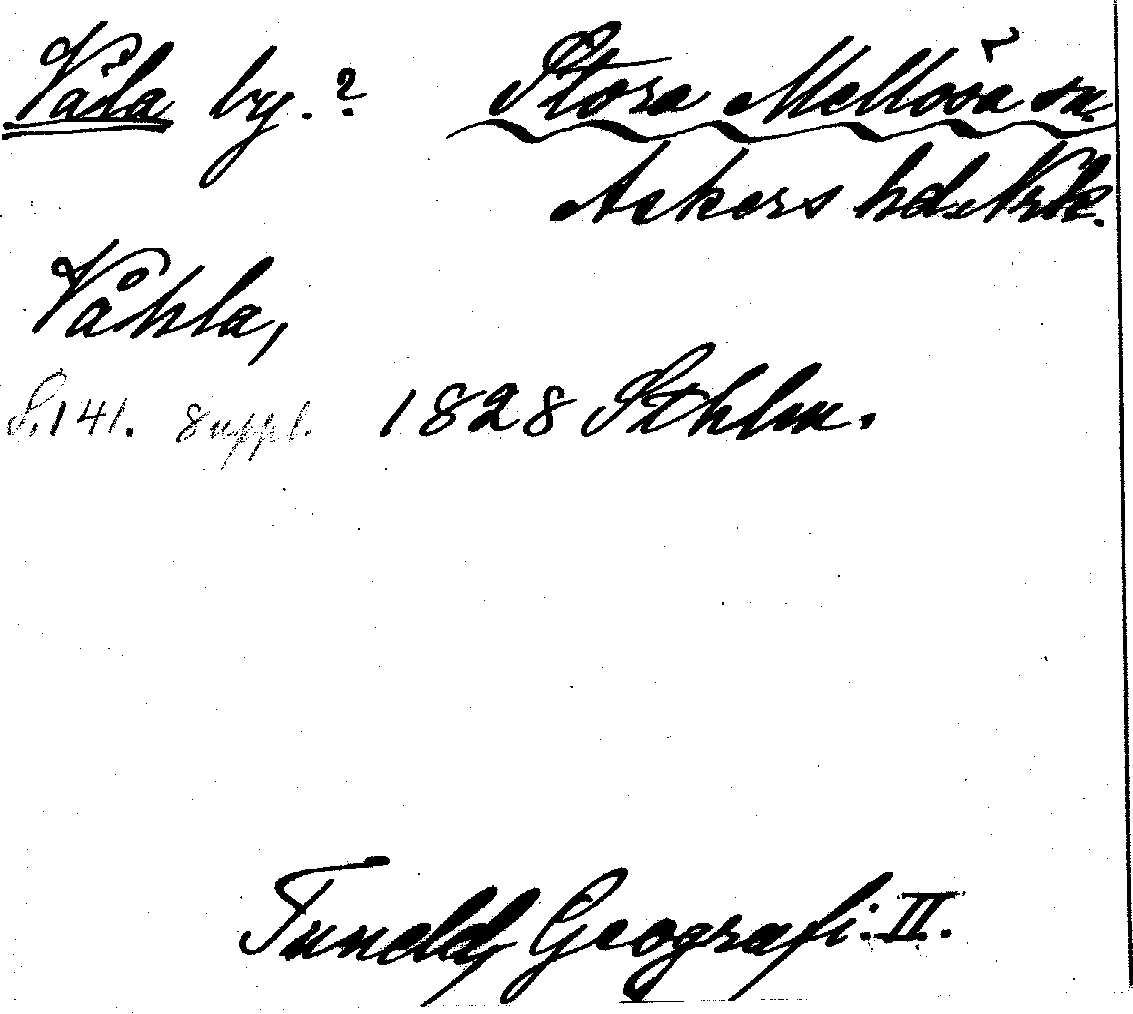 Våla by.? Stora Mellösa sn.
Askers hd. Nrk.
Våhla,
S. 141. Suppl. 1828 Sthlm.
Tuneld, Geografi: II.